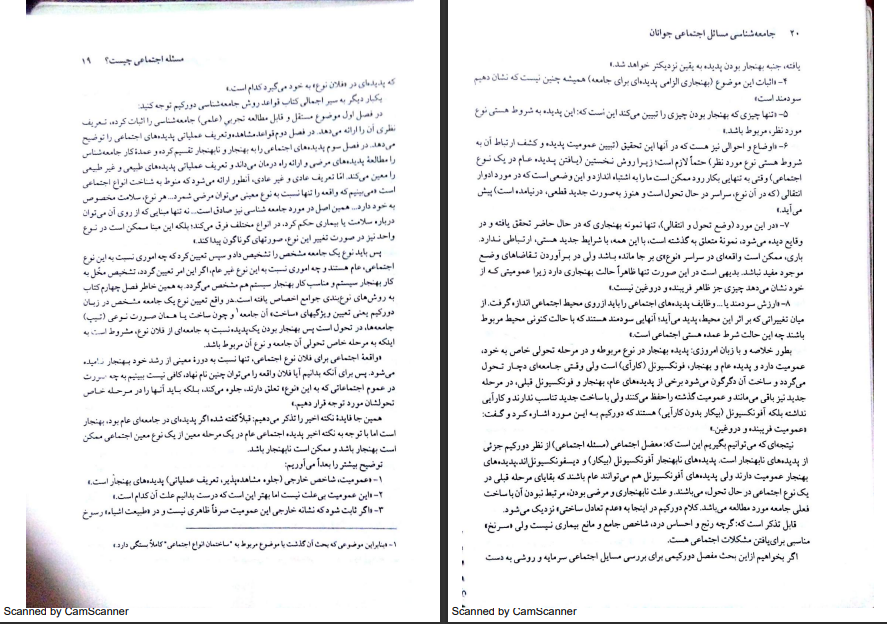 مسئله اجتماعی چیست؟ ۱۹
که پدیده‌ای در «فلان نوع» به خود می‌گیرد کدام است.»
یکبار دیگر به سیر اجمالی کتاب قواعد روش جامعه‌شناسی دورکیم توجه کنید:
در فصل اول موضوع مستقل و قابل مطالعه تجربی (علمی) جامعه‌شناسی را اثبات کرده، تعریف
نظری آن را ارائه می‌دهد. در فصل دوم قواعد مشاهده و تعریف عملیاتی پدیده‌های اجتماعی را توضیح
می‌دهد. در فصل سوم پدیده‌های اجتماعی را به بهنجار و نابهنجار تقسیم کرده و عمدهٔ کار جامعه‌شناس
را مطالعهٔ پدیده‌های مرضی و ارائه راه درمان می‌داند و تعریف عملیاتی پدیده‌های طبیعی و غیر طبیعی
را معین می‌کند. امّا تعریف عادی و غیر عادی، آنطور ارائه می‌شود که منوط به شناخت انواع اجتماعی
است «می‌بینیم که واقعه را تنها نسبت به نوع معینی می‌توان مرضی شمرد... هر نوع، سلامت مخصوص
به خود دارد... همین اصل در مورد جامعه شناسی نیز صادق است... نه تنها مبنایی که از روی آن می‌توان
درباره سلامت یا بیماری حکم کرد، در انواع مختلف فرق می‌کند؛ بلکه این مبنا ممکن است در نوع
واحد نیز در صورت تغییر این نوع، صورتهای گوناگون پیدا کند.»
پس باید نوع یک جامعه مشخص را تشخیص داد و سپس تعیین کرد که چه اموری نسبت به این نوع
اجتماعی، عام هستند و چه اموری نسبت به این نوع غیر عام، اگر این امر تعیین گردد، تشخیص مخل به
کار بهنجار سیستم و مناسب کار بهنجار سیستم هم مشخص می‌گردد. به همین خاطر فصل چهارم کتاب
به روش‌های نوع‌بندی جوامع اختصاص یافته است. در واقع تعیین نوع یک جامعه مشخص در زبان
دورکیم یعنی تعیین ویژگیهای «ساخت» آن جامعه¹ و چون ساخت یا همان صورت نوعی (تیپ)
جامعه‌ها، در تحول است پس بهنجار بودن یک پدیده نسبت به جامعه‌ای از فلان نوع، مشروط است به
اینکه به مرحله خاص تحولی آن جامعه و نوع آن مربوط باشد.
«واقعهٔ اجتماعی برای فلان نوع اجتماعی، تنها نسبت به دورهٔ معینی از رشد خود بهنجار نامیده
می‌شود. پس برای آنکه بدانیم آیا فلان واقعه را می‌توان چنین نام نهاد، کافی نیست ببینیم به چه صورت
در عموم اجتماعاتی که به این «نوع» تعلق دارند، جلوه می‌کند، بلکه باید آنها را در مرحله خاص
تحولشان مورد توجه قرار دهیم.»
همین جا فایدهٔ نکته اخیر را تذکر می‌دهیم: قبلاً گفته شده اگر پدیده‌ای در جامعه‌ای عام بود، بهنجار
است اما با توجه به نکته اخیر پدیده اجتماعی عام در یک مرحله معین از یک نوع معین اجتماعی ممکن
است بهنجار باشد و ممکن است نابهنجار باشد.
توضیح بیشتر را بعداً می‌آوریم:
۱- «عمومیت، شاخص خارجی (جلوه مشاهده‌پذیر، تعریف عملیاتی) پدیده‌های بهنجار است.»
۲- «این عمومیت بی‌علت نیست اما بهتر این است که درست بدانیم علت آن کدام است.»
۳- «اگر ثابت شود که نشانه خارجی این عمومیت صرفاً ظاهری نیست و در «طبیعت اشیاء» رسوخ
۱- «بنابراین موضوعی که بحث آن گذشت با موضوع مربوط به "ساختمان انواع اجتماعی" کاملاً بستگی دارد.»
Scanned by CamScanner
۲۰ جامعه‌شناسی مسائل اجتماعی جوانان
یافته، جنبه بهنجار بودن پدیده به یقین نزدیکتر خواهد شد.»
۴- «اثبات این موضوع (بهنجاری الزامی پدیده‌ای برای جامعه) همیشه چنین نیست که نشان دهیم
سودمند است.»
۵- «تنها چیزی که بهنجار بودن چیزی را تبیین می‌کند این است که: این پدیده به شروط هستی نوع
مورد نظر، مربوط باشد.»
۶- «اوضاع و احوالی نیز هست که در آنها این تحقیق (تبیین عمومیت پدیده و کشف ارتباط آن به
شروط هستی نوع مورد نظر) حتماً لازم است؛ زیرا روش نخستین (یافتن پدیده عام در یک نوع
اجتماعی) وقتی به تنهایی بکار رود ممکن است ما را به اشتباه اندازد و این وضعی است که در مورد ادوار
انتقالی (که در آن نوع، سراسر در حال تحول است و هنوز به‌صورت جدید قطعی، درنیامده است) پیش
می‌آید.»
۷- «در این مورد (وضع تحول و انتقالی)، تنها نمونه بهنجاری که در حال حاضر تحقق یافته و در
وقایع دیده می‌شود، نمونهٔ متعلق به گذشته است، با این همه، با شرایط جدید هستی، ارتباطی ندارد.
باری، ممکن است واقعه‌ای در سراسر «نوع»ای بر جا مانده باشد ولی در برآوردن تقاضاهای وضع
موجود مفید نباشد. بدیهی است در این صورت تنها ظاهراً حالت بهنجاری دارد زیرا عمومیتی که از
خود نشان می‌دهد چیزی جز ظاهر فریبنده و دروغین نیست.»
۸- «ارزش سودمند یا... وظایف پدیده‌های اجتماعی را باید از روی محیط اجتماعی اندازه گرفت. از
میان تغییراتی که بر اثر این محیط، پدید می‌آید؛ آنهایی سودمند هستند که با حالت کنونی محیط مربوط
باشند چه این حالت شرط عمده هستی اجتماعی است.»
بطور خلاصه و با زبان امروزی: پدیده بهنجار در نوع مربوطه و در مرحله تحولی خاص به خود،
عمومیت دارد و پدیده عام و بهنجار، فونکسیونل (کارآی) است ولی وقتی جامعه‌ای دچار تحول
می‌گردد و ساخت آن دگرگون می‌شود برخی از پدیده‌های عام، بهنجار و فونکسیونل قبلی، در مرحله
جدید نیز باقی می‌مانند و عمومیت گذشته را حفظ می‌کنند ولی با ساخت جدید تناسب ندارند و کارآیی
نداشته بلکه آفونکسیونل (بیکار بدون کارآیی) هستند که دورکیم به این مورد اشاره کرد و گفت:
«عمومیت فریبنده و دروغین.»
نتیجه‌ای که می‌توانیم بگیریم این است که: معضل اجتماعی (مسئله اجتماعی) از نظر دورکیم جزئی
از پدیده‌های نابهنجار است. پدیده‌های نابهنجار آفونکسیونل (بیکار) و دیسفونکسیونل‌اند. پدیده‌های
بهنجار عمومیت دارند ولی پدیده‌های آفونکسیونل هم می‌توانند عام باشند که بقایای مرحله قبلی در
یک نوع اجتماعی در حال تحول، می‌باشند. و علت نابهنجاری و مرضی بودن، مرتبط نبودن آن با ساخت
فعلی جامعه مورد مطالعه می‌باشد. کلام دورکیم در اینجا به «عدم تعادل ساختی» نزدیک می‌شود.
قابل تذکر است که: گرچه رنج و احساس درد، شاخص جامع و مانع بیماری نیست ولی «سرنخ»
مناسبی برای یافتن مشکلات اجتماعی هست.
اگر بخواهیم از این بحث مفصل دورکیمی برای بررسی مسایل اجتماعی سرمایه و روشی به دست
Scanned by CamScanner